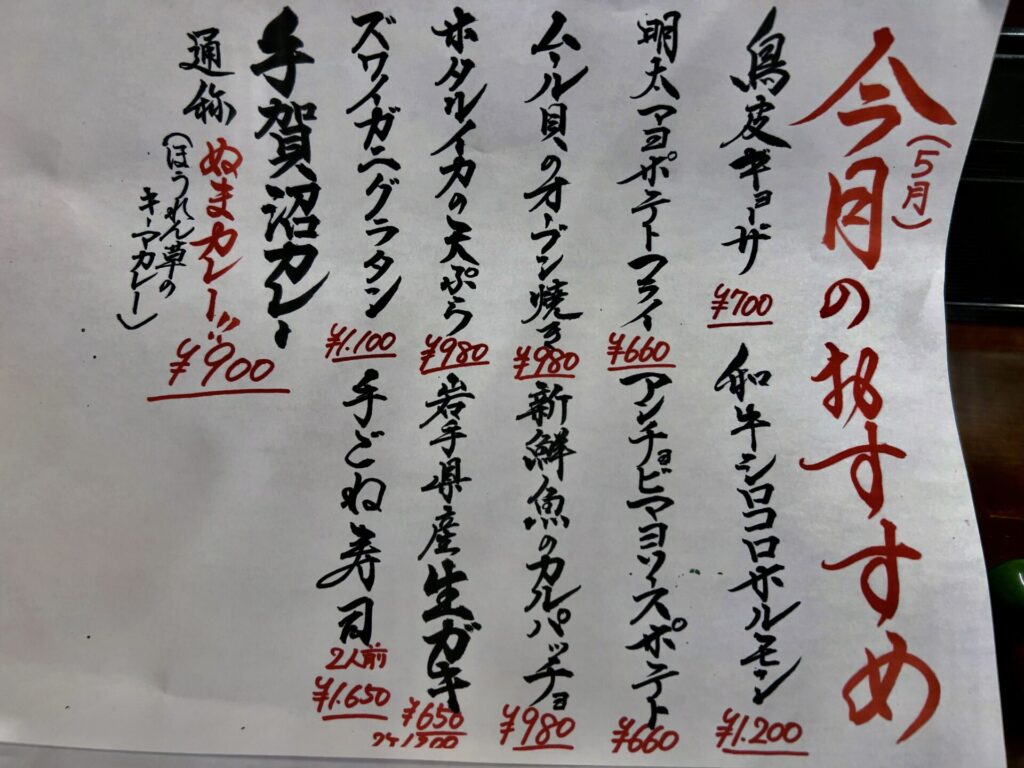 今月のおすすめ
(5月)
鳥皮ギョーザ
¥700
和牛シロコロホルモン
¥1.200
明太マヨポテトフライ
¥660
アンチョビマヨソースポテト
¥660
ムール貝のオーブン焼き
¥980
新鮮魚のカルパッチョ
¥980
ホタルイカの天ぷら
¥980
岩手県産生ガキ
¥650
ズワイガニグラタン
¥1.100
手ごね寿司
2人前
¥1.650
手賀沼カレー
通称 ぬまカレー!!
(ほうれん草の
キーマカレー)
¥900